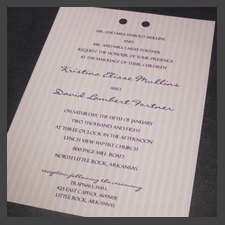 MR. AND MRS. HAROLD MULLINS
AND
MR. AND MRS. LARRY FORTNER
REQUEST THE HONOUR OF YOUR PRESENCE
AT THE MARRIAGE OF THEIR CHILDREN
Kristina Elisse Mullins
AND
David Lambert Fortner
SATURDAY THE FIFTH OF JANUARY
TWO THOUSAND AND EIGHT
AT THREE O'CLOCK IN THE AFTERNOON
LYNCH VIEW BAPTIST CHURCH
800 PAGE MILL ROAD
NORTH LITTLE ROCK, ARKANSAS
reception following the ceremony
TRAPNALL HALL
423 EAST CAPITOL AVENUE
LITTLE ROCK, ARKANSAS